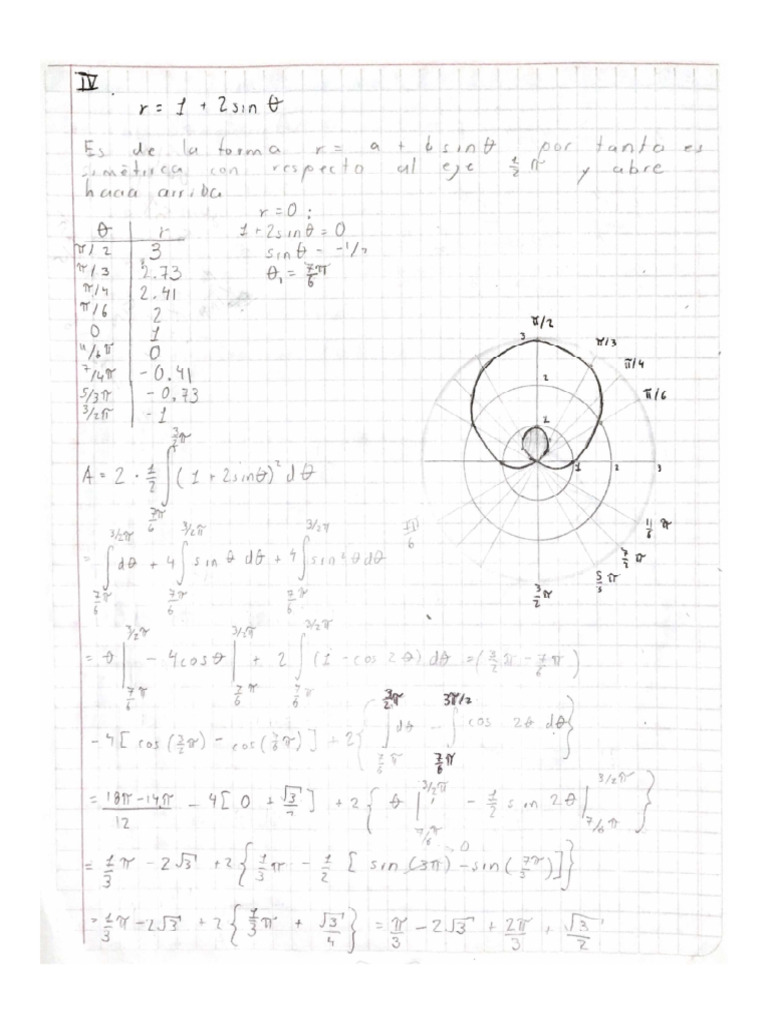 IV.
r = 1 + 2 sin θ
Es de la forma r = a + b sinθ por tanto es
simétrica con respecto al eje 1/2 π y abre
hacia arriba
r = 0 :
1 + 2 sinθ = 0
sinθ = -1/2
θ₁ = 7π/6
θ | r
π/2 | 3
π/3 | 2.73
π/4 | 2.41
π/6 | 2
0 | 1
11/6 π | 0
7/4 π | -0.41
5/3 π | -0.73
3/2 π | -1
π/2
3
π/3
π/4
2
π/6
1 2 3
11/6 π
5/3 π
3/2 π
11π/6
A = 2 · 1/2 ∫_{7π/6}^{3/2 π} (1 + 2 sinθ)² dθ
= ∫_{7/6 π}^{3/2 π} dθ + 4 ∫_{7/6 π}^{3/2 π} sin θ dθ + 4 ∫_{7/6 π}^{3/2 π} sin² θ dθ
= θ |_{7/6 π}^{3/2 π} - 4 cos θ |_{7/6 π}^{3/2 π} + 2 ∫_{7/6 π}^{3/2 π} (1 - cos 2θ) dθ = (3/2 π - 7/6 π)
- 4 [ cos (3/2 π) - cos (7/6 π) ] + 2 { ∫_{7/6 π}^{3/2 π} dθ - ∫_{7/6 π}^{3π/2} cos 2θ dθ }
= (18π - 14π)/12 - 4 [ 0 + √3/2 ] + 2 { θ |_{7/6 π}^{3/2 π} - 1/2 sin 2θ |_{7/6 π}^{3/2 π} }
= 1/3 π - 2√3 + 2 { 1/3 π - 1/2 [ sin (3π) 0 - sin (7π/3) ] }
= 1/3 π - 2√3 + 2 { 1/3 π + √3/4 } = π/3 - 2√3 + 2π/3 + √3/2